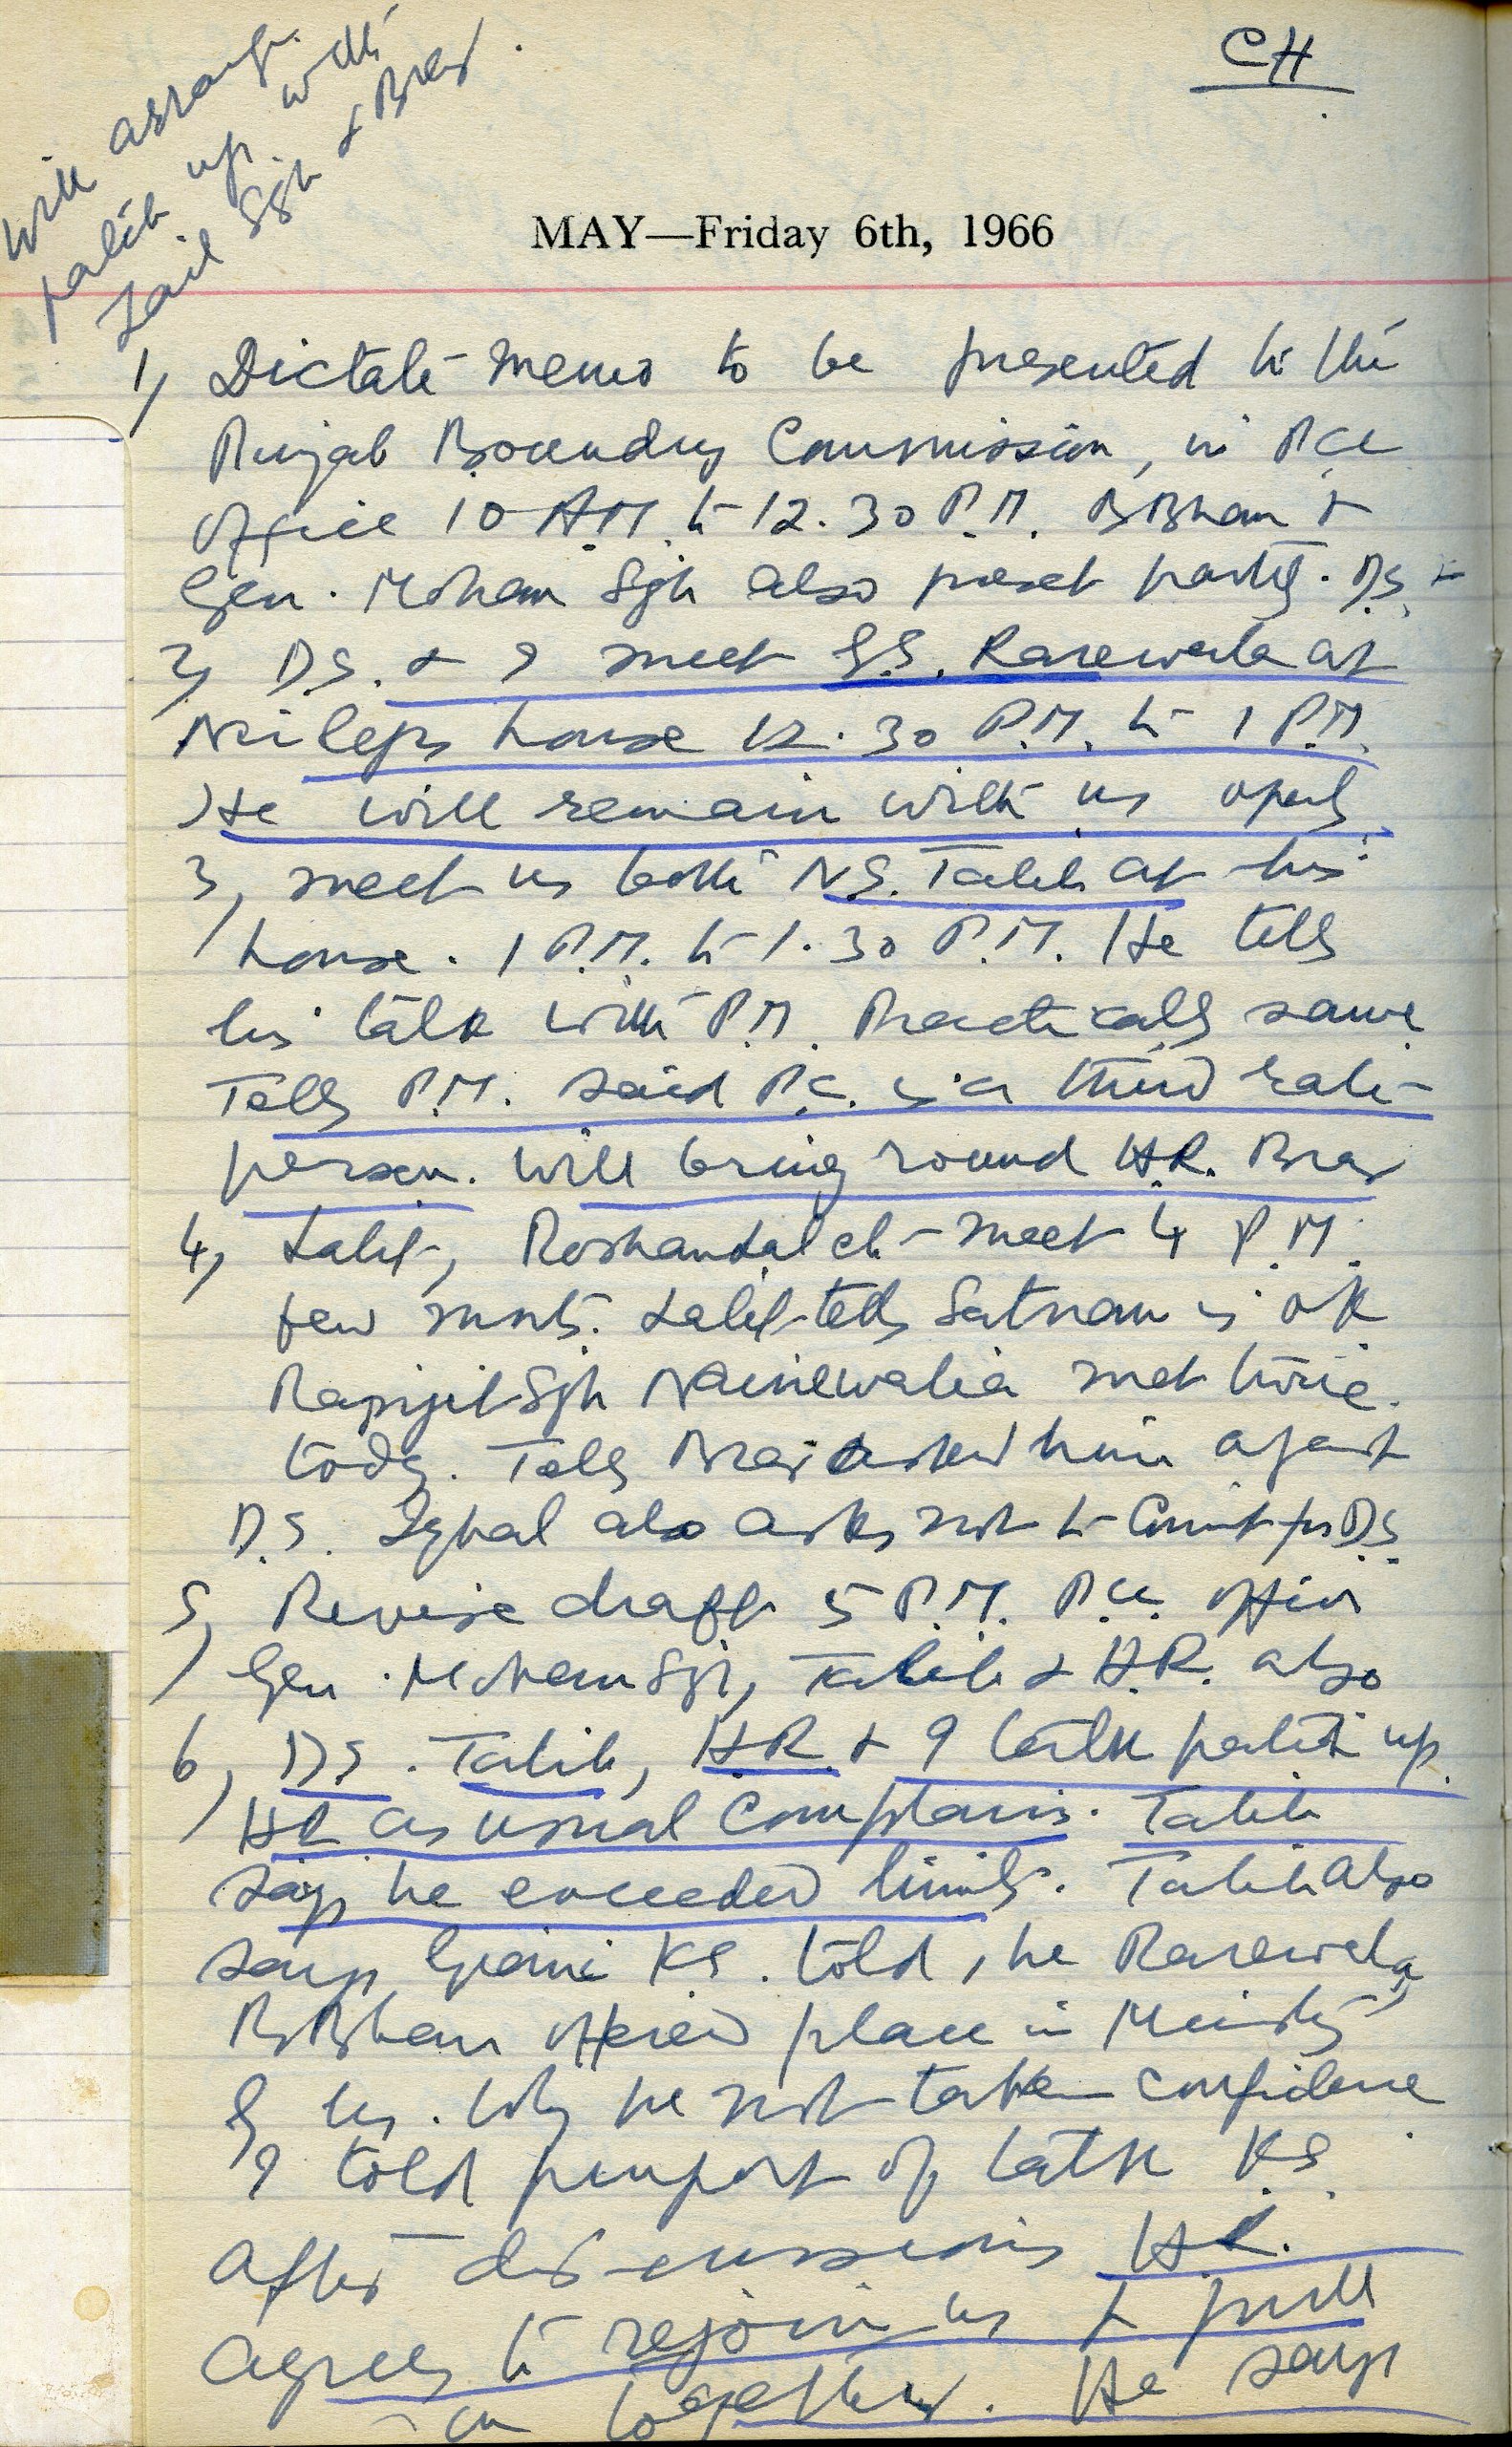 CH
MAY—Friday 6th, 1966
1) Dictate memo to be presented to the
Punjab Boundry Commission, in PCC
office 10 A.M. to 12.30 P.M. B Bhan &
Gen. Mohan Sgh also preset partly. DS &
2) D.S. & I meet G.S. Rarewala at
house 12.30 P.M. to 1 P.M.
He will remain with us openly
3) meet us both N.S. Talib at his
house. 1 P.M. to 1.30 P.M. He tells
his talk with P.M. Practically same
Tells P.M. said P.C. is a third rate
person. Will bring round H.R. Brar
4) Lalit, Roshanlal ch meet 4 P.M.
few mnts. Lalit tells Satnam is OK
Ranjit Sgh Nainewalia met twice
today. Tells Brar asked him against
D.S. Iqbal also asks not to Comit for DS
5) Revise draft 5 P.M. P.CC. office
Gen. Mohan Sgh, Talib & H.R. also
6) D.S. Talib, HR & I talk patch up
HR as usual Complains. Talib
says he exceeded limits. Talib also
says Gyani K.S. told, he Rarewala
B Bhan offered place in Ministry
by us. Why he not taken confidence
I told purport of talk K.S.
After discussions HR.
agrees to rejoin us & pull
on together. He says
Will arrange
patch up with
Zail Sgh & Brar.